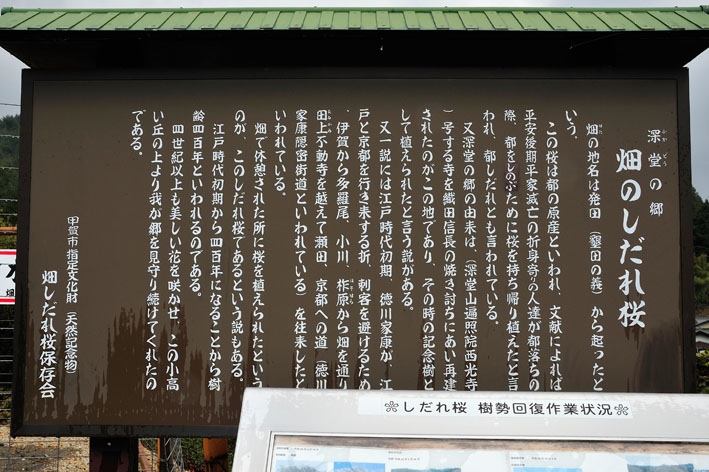 深堂の郷
ふかどう
畑のしだれ桜
畑の地名は発田（墾田の義）から起ったと
いう。
この桜は都の原産といわれ、文献によれば
平安後期平家滅亡の折身寄の人達が都落ちの
際、都をしのぶために桜を持ち帰り植えたと言
われ、都しだれとも言われている。
又深堂の郷の由来は、（深堂山遍照院西光寺
）号する寺を織田信長の焼き討ちにあい再建
されたのがこの地であり、その時の記念樹と
して植えられたと言う説がある。
又一説には江戸時代初期、徳川家康が、江
戸と京都を行き来する折、刺客を避けるため
、伊賀から多羅尾、小川、柞原から畑を通り
田上不動寺を越えて瀬田、京都への道（徳川
家康隠密街道といわれている）を往来したと
いわれている。
畑で休憩された所に桜を植えられたという
のが、このしだれ桜であるという説もある。
江戸時代初期から四百年になることから樹
齢四百年といわれるのである。
四世紀以上も美しい花を咲かせ、この小高
い丘の上より我が郷を見守り続けてくれたの
である。
甲賀市指定文化財（天然記念物）
畑しだれ桜保存会
❀しだれ桜 樹勢回復作業状況❀